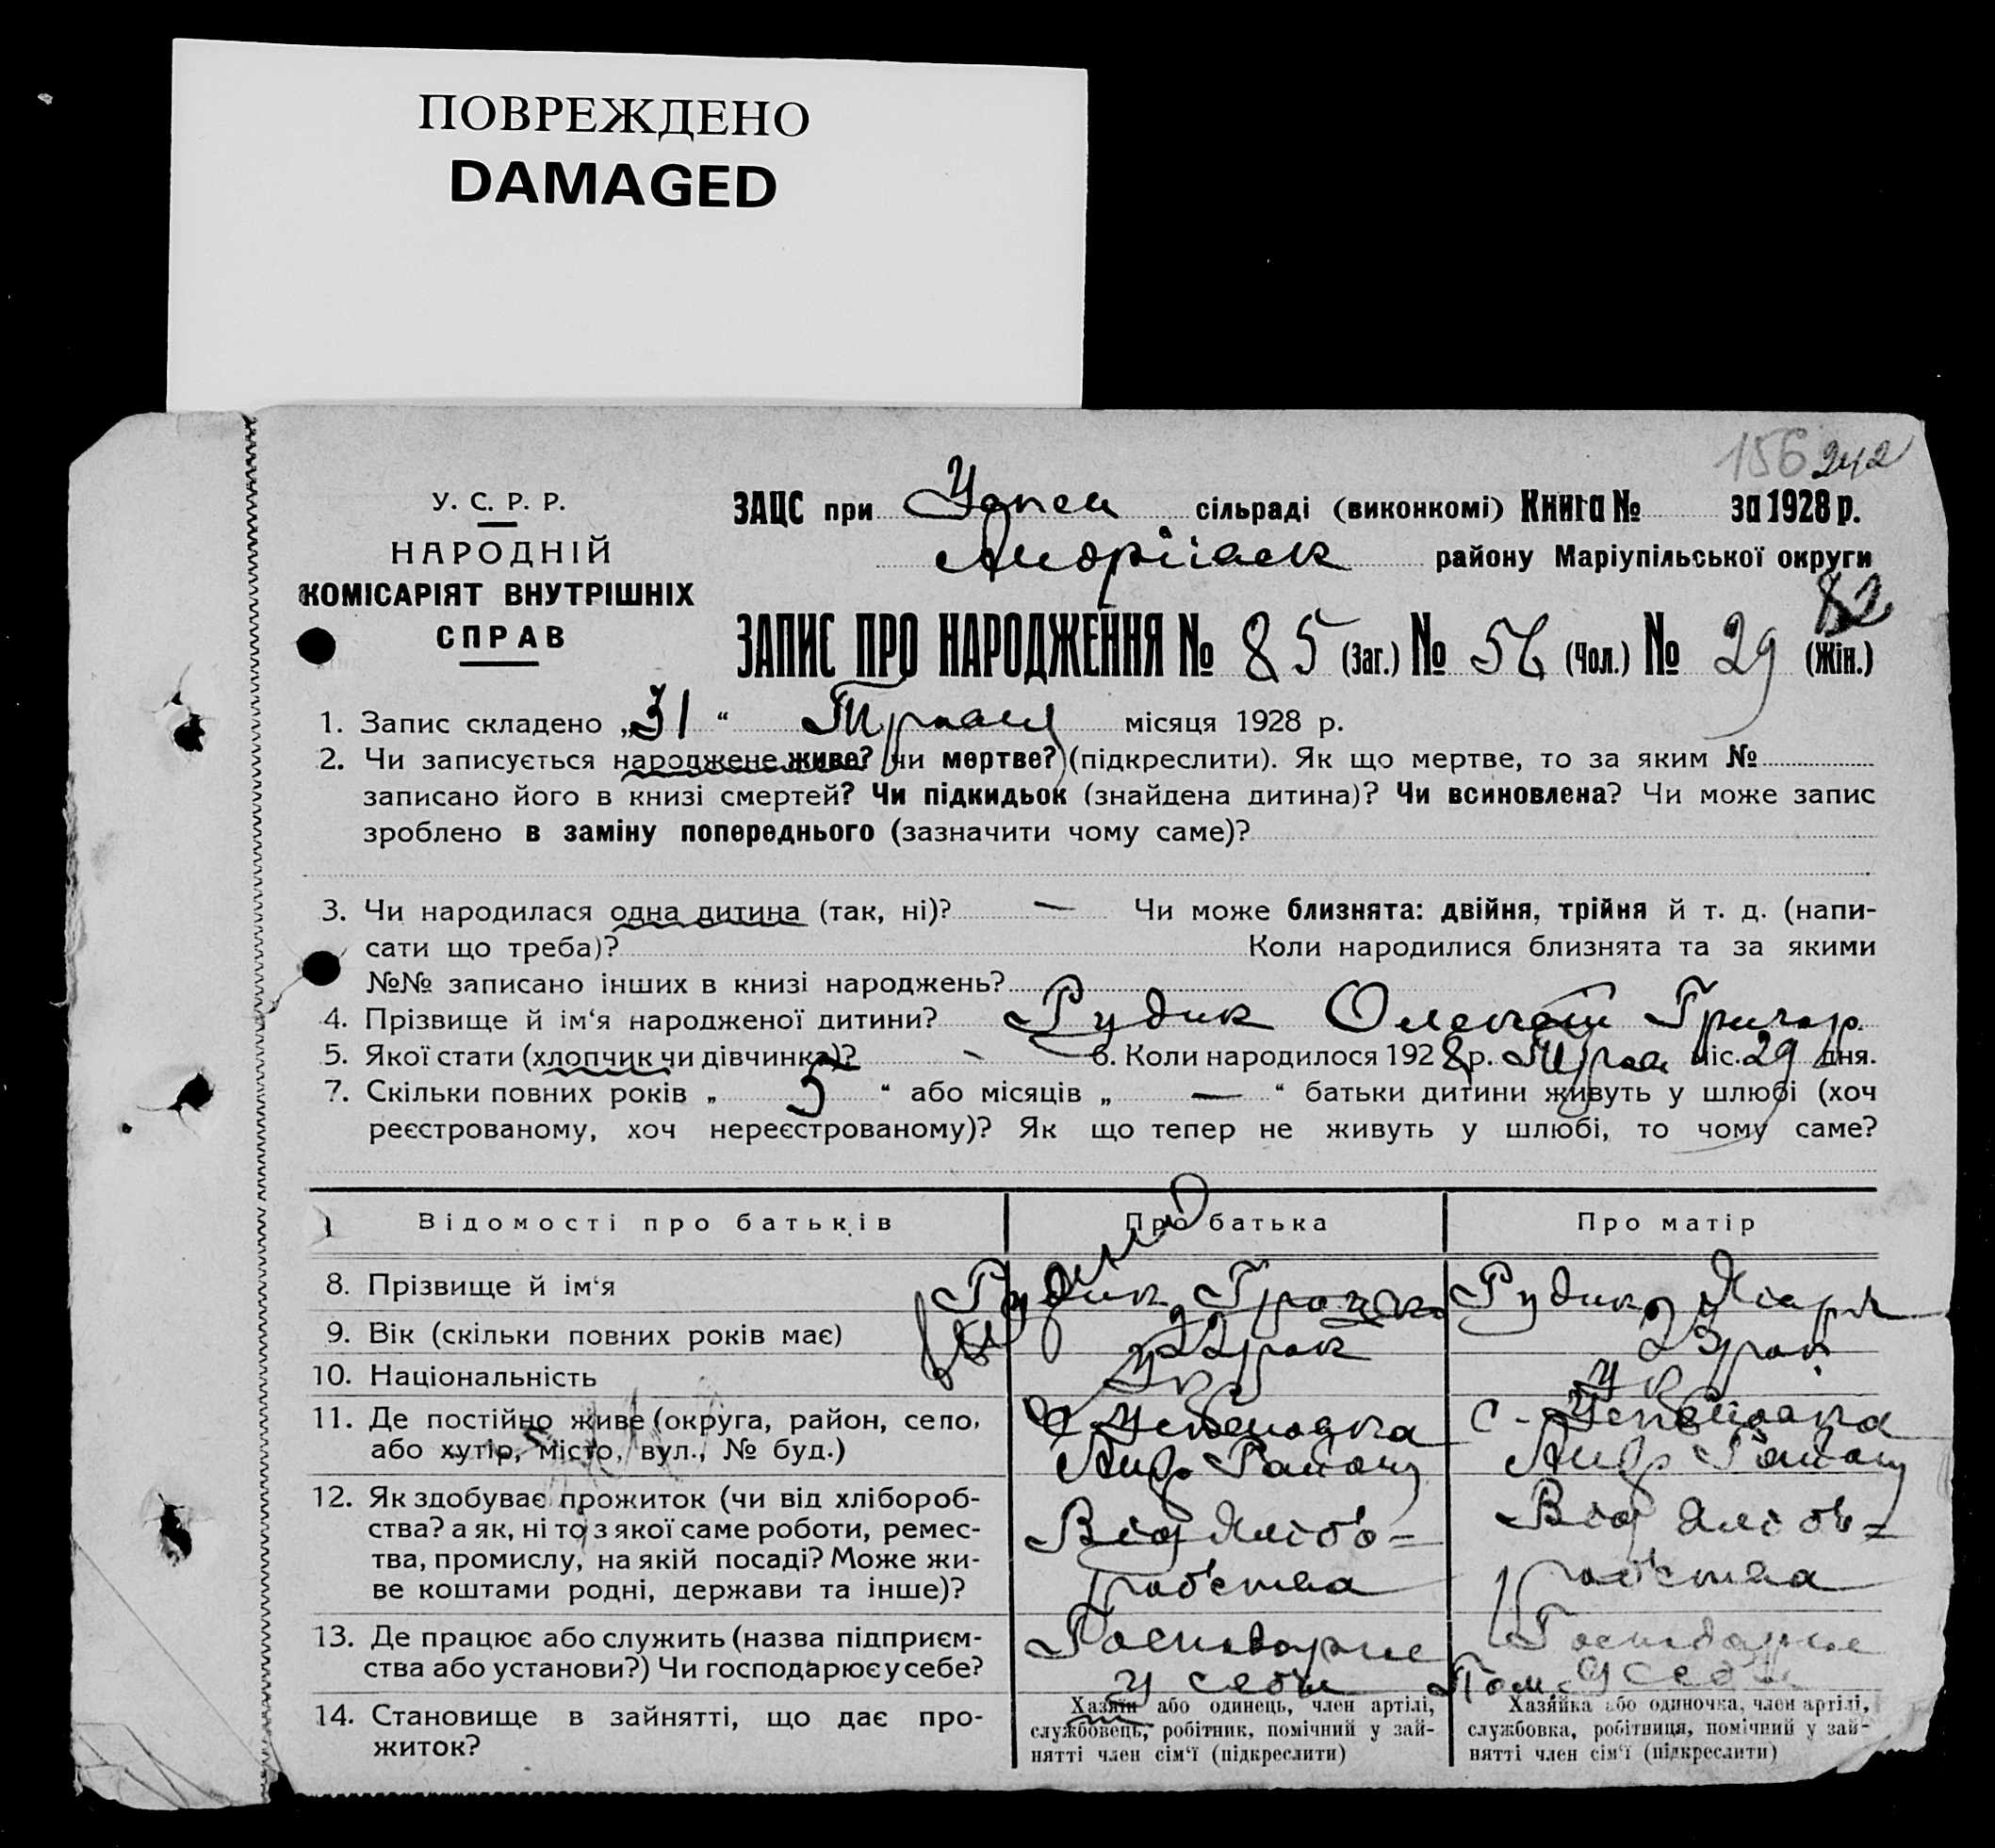 ПОВРЕЖДЕНО
DAMAGED
156 242
У. С. Р. Р.
НАРОДНІЙ
КОМІСАРІЯТ ВНУТРІШНІХ
СПРАВ
ЗАЦС при Успен сільраді (виконкомі) Книга № за 1928 р.
Андріівск району Маріупільської округи
82
ЗАПИС ПРО НАРОДЖЕННЯ № 85 (Заг.) № 56 (Чол.) № 29 (Жін.)
1. Запис складено „31“ Травня місяця 1928 р.
2. Чи записується народжене живе? чи мертве? (підкреслити). Як що мертве, то за яким №
записано його в книзі смертей? Чи підкидьок (знайдена дитина)? Чи всиновлена? Чи може запис
зроблено в заміну попереднього (зазначити чому саме)?
3. Чи народилася одна дитина (так, ні)? — Чи може близнята: двійня, трійня й т. д. (напи-
сати що треба)? Коли народилися близнята та за якими
№№ записано інших в книзі народжень?
4. Прізвище й ім‘я народженої дитини? Рудик Олексій Григор.
5. Якої стати (хлопчик чи дівчинка)? - 6. Коли народилося 1928 р. Трав міс. 29 дня.
7. Скільки повних років „ 5 “ або місяців „ — “ батьки дитини живуть у шлюбі (хоч
реєстрованому, хоч нереєстрованому)? Як що тепер не живуть у шлюбі, то чому саме?
Відомості про батьків Про батька Про матір
8. Прізвище й ім‘я Рудик Рудик Марія
9. Вік (скільки повних років має) 22 рок 23 рок
10. Національність Укр Укр
11. Де постійно живе (округа, район, село, с Успеновка с - Успеновка
або хутір, місто, вул., № буд.) Андр Району Андр Району
12. Як здобуває прожиток (чи від хлібороб- Від Хлібо= Від Хлібо=
ства? а як, ні то з якої саме роботи, ремес-
тва, промислу, на якій посаді? Може жи- робства робства
ве коштами родні, держави та інше)?
13. Де працює або служить (назва підприєм- Господарює Господарює
ства або установи?) Чи господарює у себе? у себе Пом. у себе
14. Становище в зайнятті, що дає про- Хазяїн або одинець, член артілі, Хазяйка або одиночка, член артілі,
житок? службовець, робітник, помічний у зай- службовка, робітниця, помічний у зай-
нятті член сім‘ї (підкреслити) нятті член сім‘ї (підкреслити)